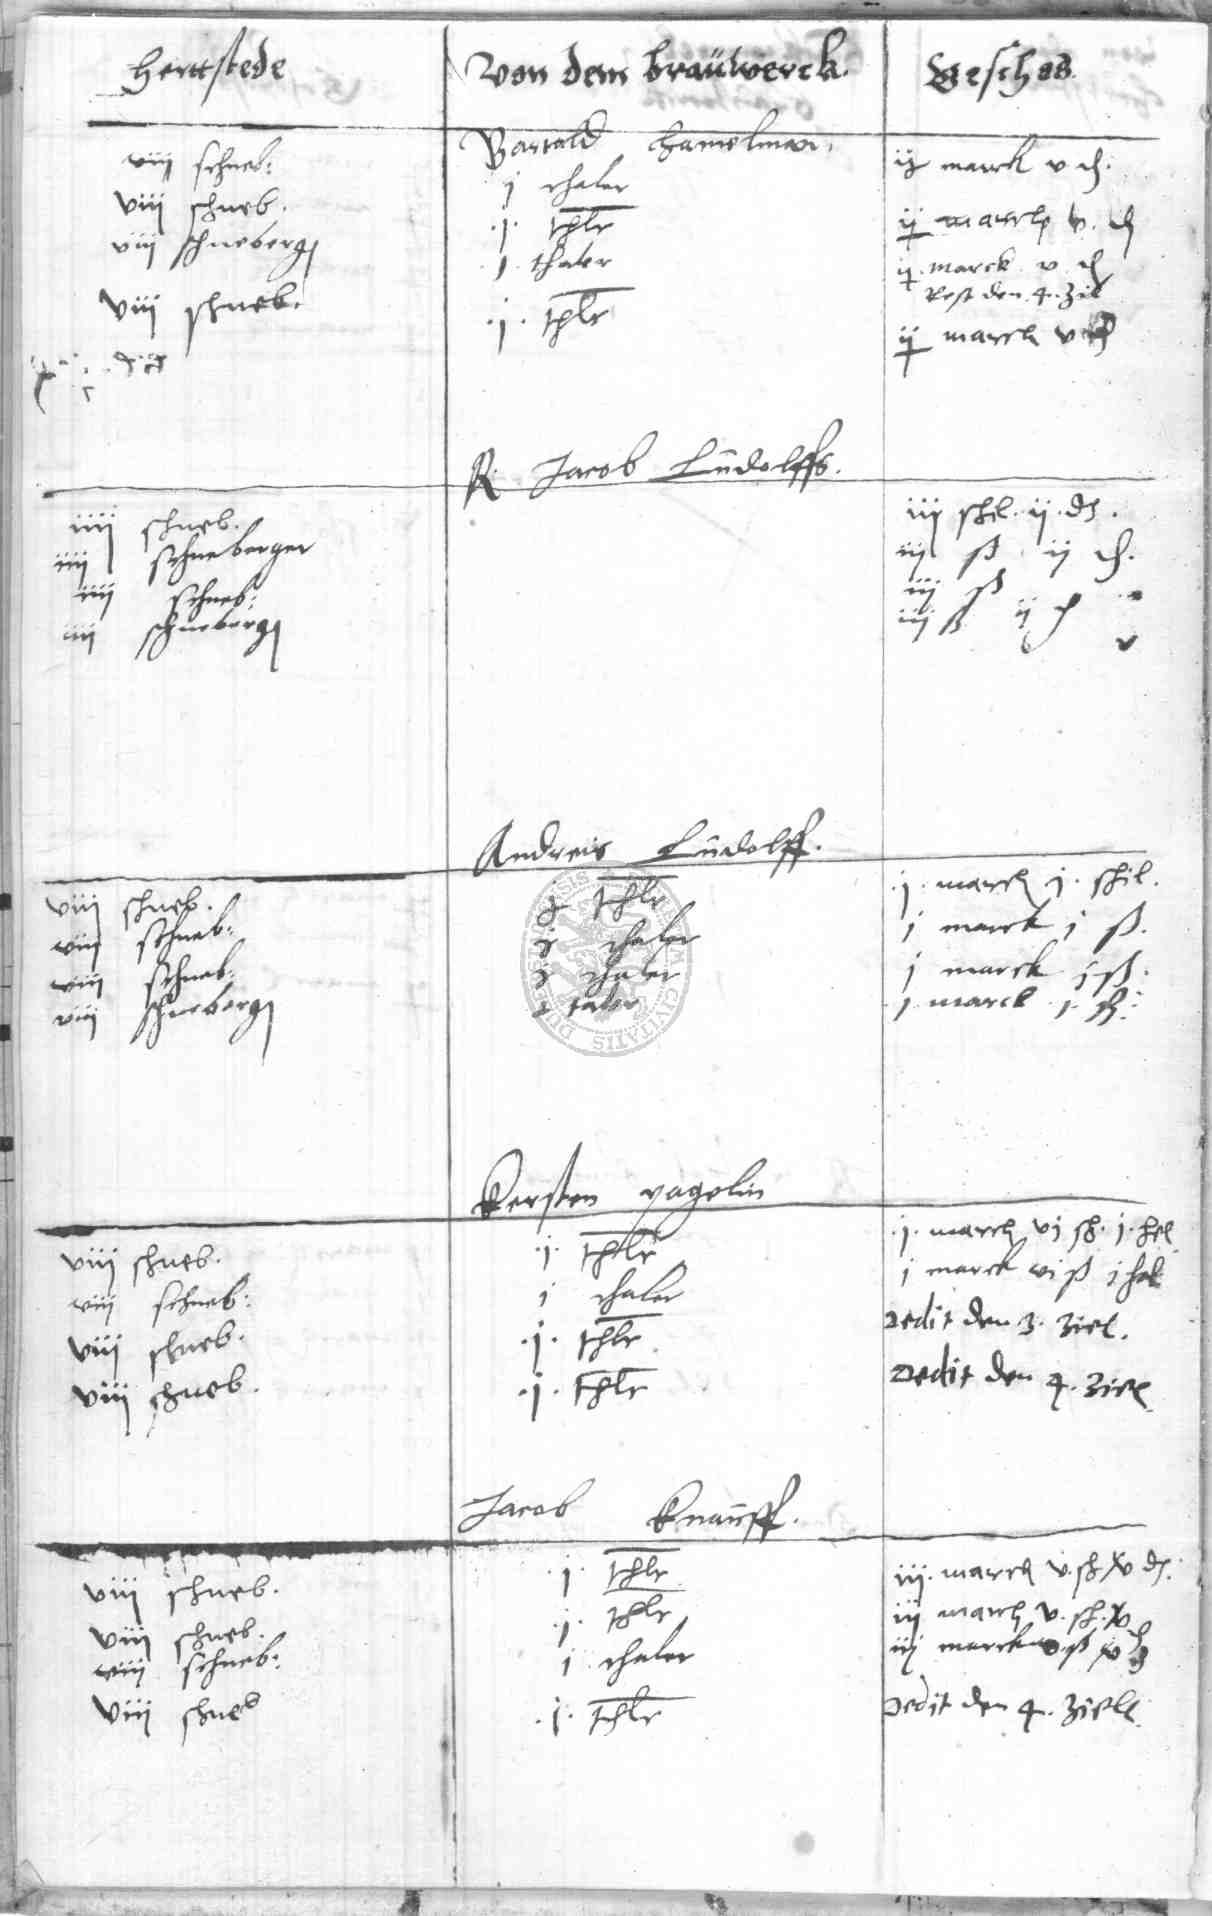 herttstede von dem braüwerck. Geschos.
Bartold Hamelman.
viij schneb: j thaler ij marck v d.
viij schneb. .j. thlr ij marck v. d
viij schneberg j thaler ij marck v d
Rest den 4. Zil
viij schneb. .j. thlr ij marck v
R Jacob Lüdolffs.
iiij schneb. iij schil. ij. d.
iiij schneberger iij ß ij d.
iiij schneb: iij ß
iiij schneberg iij ß ij d
Andreis Lüdolff.
viij schneb. j thlr .j. marck j. schil.
viij schneb: j thaler j marck j ß.
viij schneb: j thaler j marck j ß.
viij schneberg j taler j marck j. ß.
Kersten pagolin
viij schneb. .j. thlr .j. marck vj sh. j. hel
viij schneb: j thaler j marck vj ß j hel
viij schneb. .j. thlr. dedit den 3. Ziel.
viij schneb. .j. thlr dedit den 4. Ziel
Jacob Knauff.
viij schneb. .j. thlr iij. marck v. sh. xv d.
viij schneb. .j. thlr iij marck v. sh. xv d
viij schneb: j thaler iij marck v ß xv d
viij schneb .j. thlr dedit den 4. Ziell
SIGILLUM CIVITATIS DUDERSTADENSIS